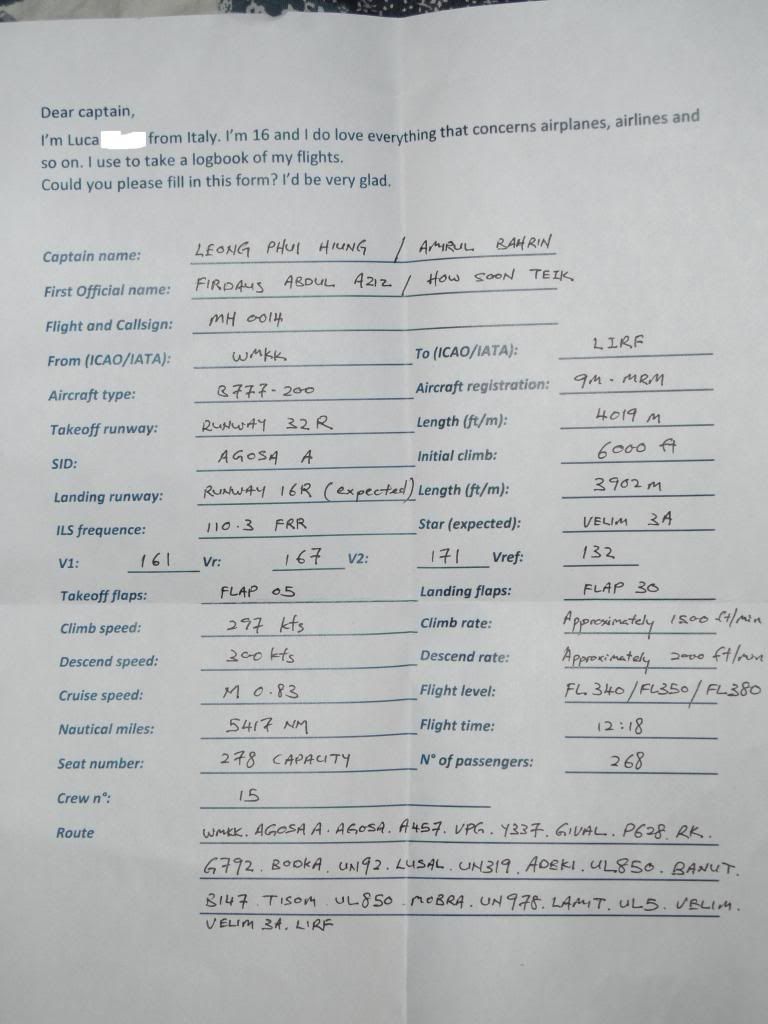 Dear captain,
I'm Luca from Italy. I'm 16 and I do love everything that concerns airplanes, airlines and
so on. I use to take a logbook of my flights.
Could you please fill in this form? I'd be very glad.
Captain name: LEONG PHUI HIUNG / AMIRUL BAHRIN
First Official name: FIRDAUS ABDUL AZIZ / HOW SOON TEIK
Flight and Callsign: MH 0014
From (ICAO/IATA): WMKK To (ICAO/IATA): LIRF
Aircraft type: B777-200 Aircraft registration: 9M-MRM
Takeoff runway: RUNWAY 32R Length (ft/m): 4019 M
SID: AGOSA A Initial climb: 6000 ft
Landing runway: RUNWAY 16R (expected) Length (ft/m): 3902 m
ILS frequence: 110.3 FRR Star (expected): VELIM 3A
V1: 161 Vr: 167 V2: 171 Vref: 132
Takeoff flaps: FLAP 05 Landing flaps: FLAP 30
Climb speed: 297 kts Climb rate: Approximately 1500 ft/min
Descend speed: 300 kts Descend rate: Approximately 2000 ft/min
Cruise speed: M 0.83 Flight level: FL 340/FL350/FL380
Nautical miles: 5417 NM Flight time: 12:18
Seat number: 278 CAPACITY N° of passengers: 268
Crew n°: 15
Route WMKK. AGOSA A. AGOSA. A457. VPG. Y337. GIVAL. P628. RK.
G792. BOOKA. UN92. LUSAL. UN319. ADEKI. UL850. BANUT.
B147. TISOM. UL850. MOBRA. UN978. LAMIT. UL5. VELIM.
VELIM 3A. LIRF